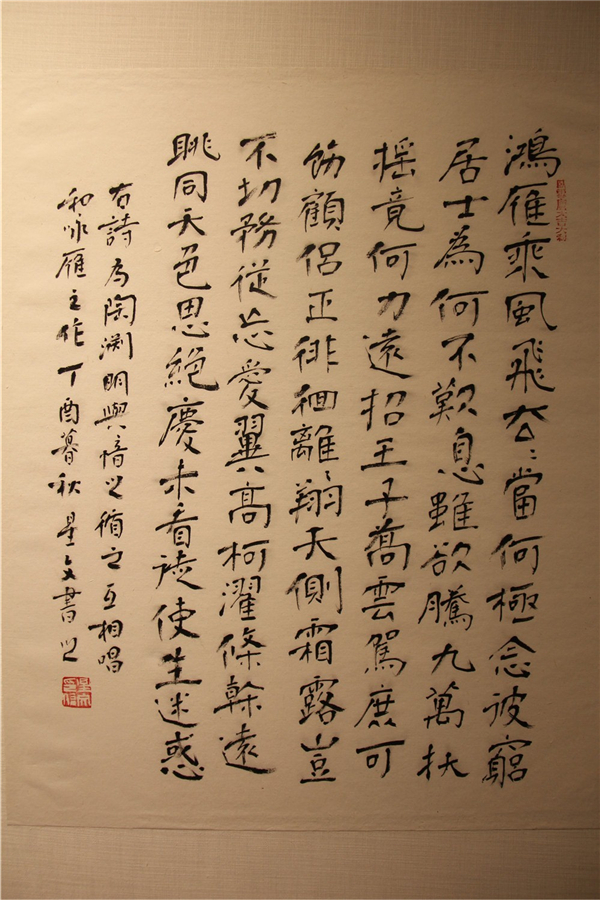 鴻雁乘風飛去〻當何極念彼窮
居士為何不歎息雖欲騰九萬扶
搖竟何力遠招王子喬雲駕庶可
飭顧侶正徘徊離〻翔天側霜露豈
不切務從忘愛翼高柯濯條幹遠
眺同天色思絕慶未看徒使生迷惑
右詩为陶淵明與愔之循之互相唱
和咏雁之作丁酉暮秋星文書之